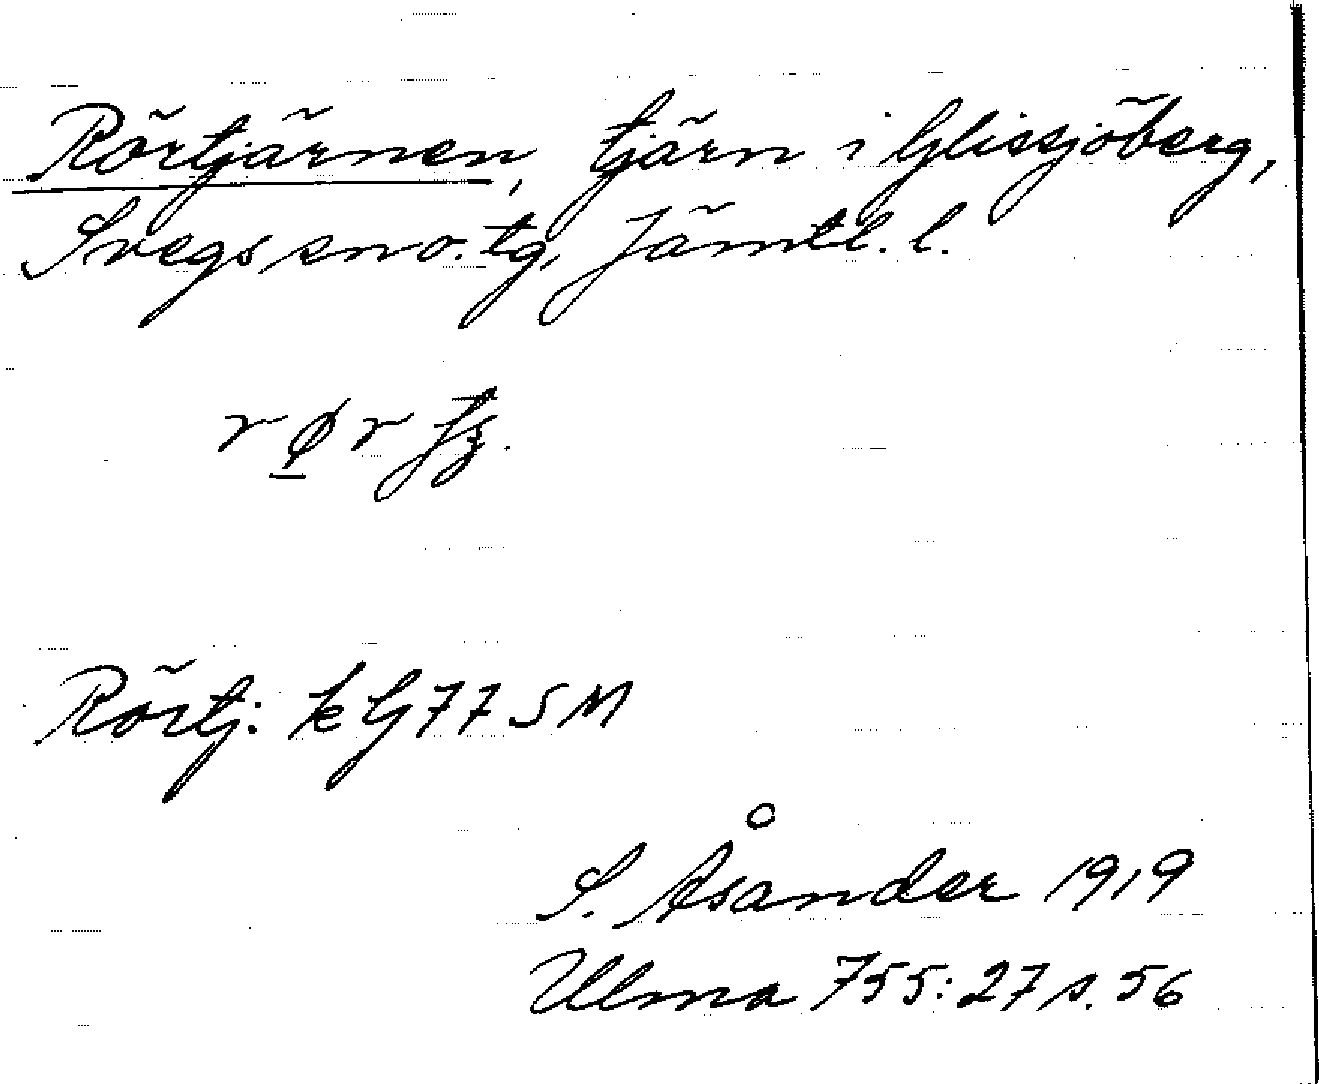 Rörtjärnen, tjärn i Glissjöberg,
Svegs sn o. tg, Jämtl. l.
Rörtj: k G77 SM
S. Åsander 1919
Ulma 755:27 s. 56